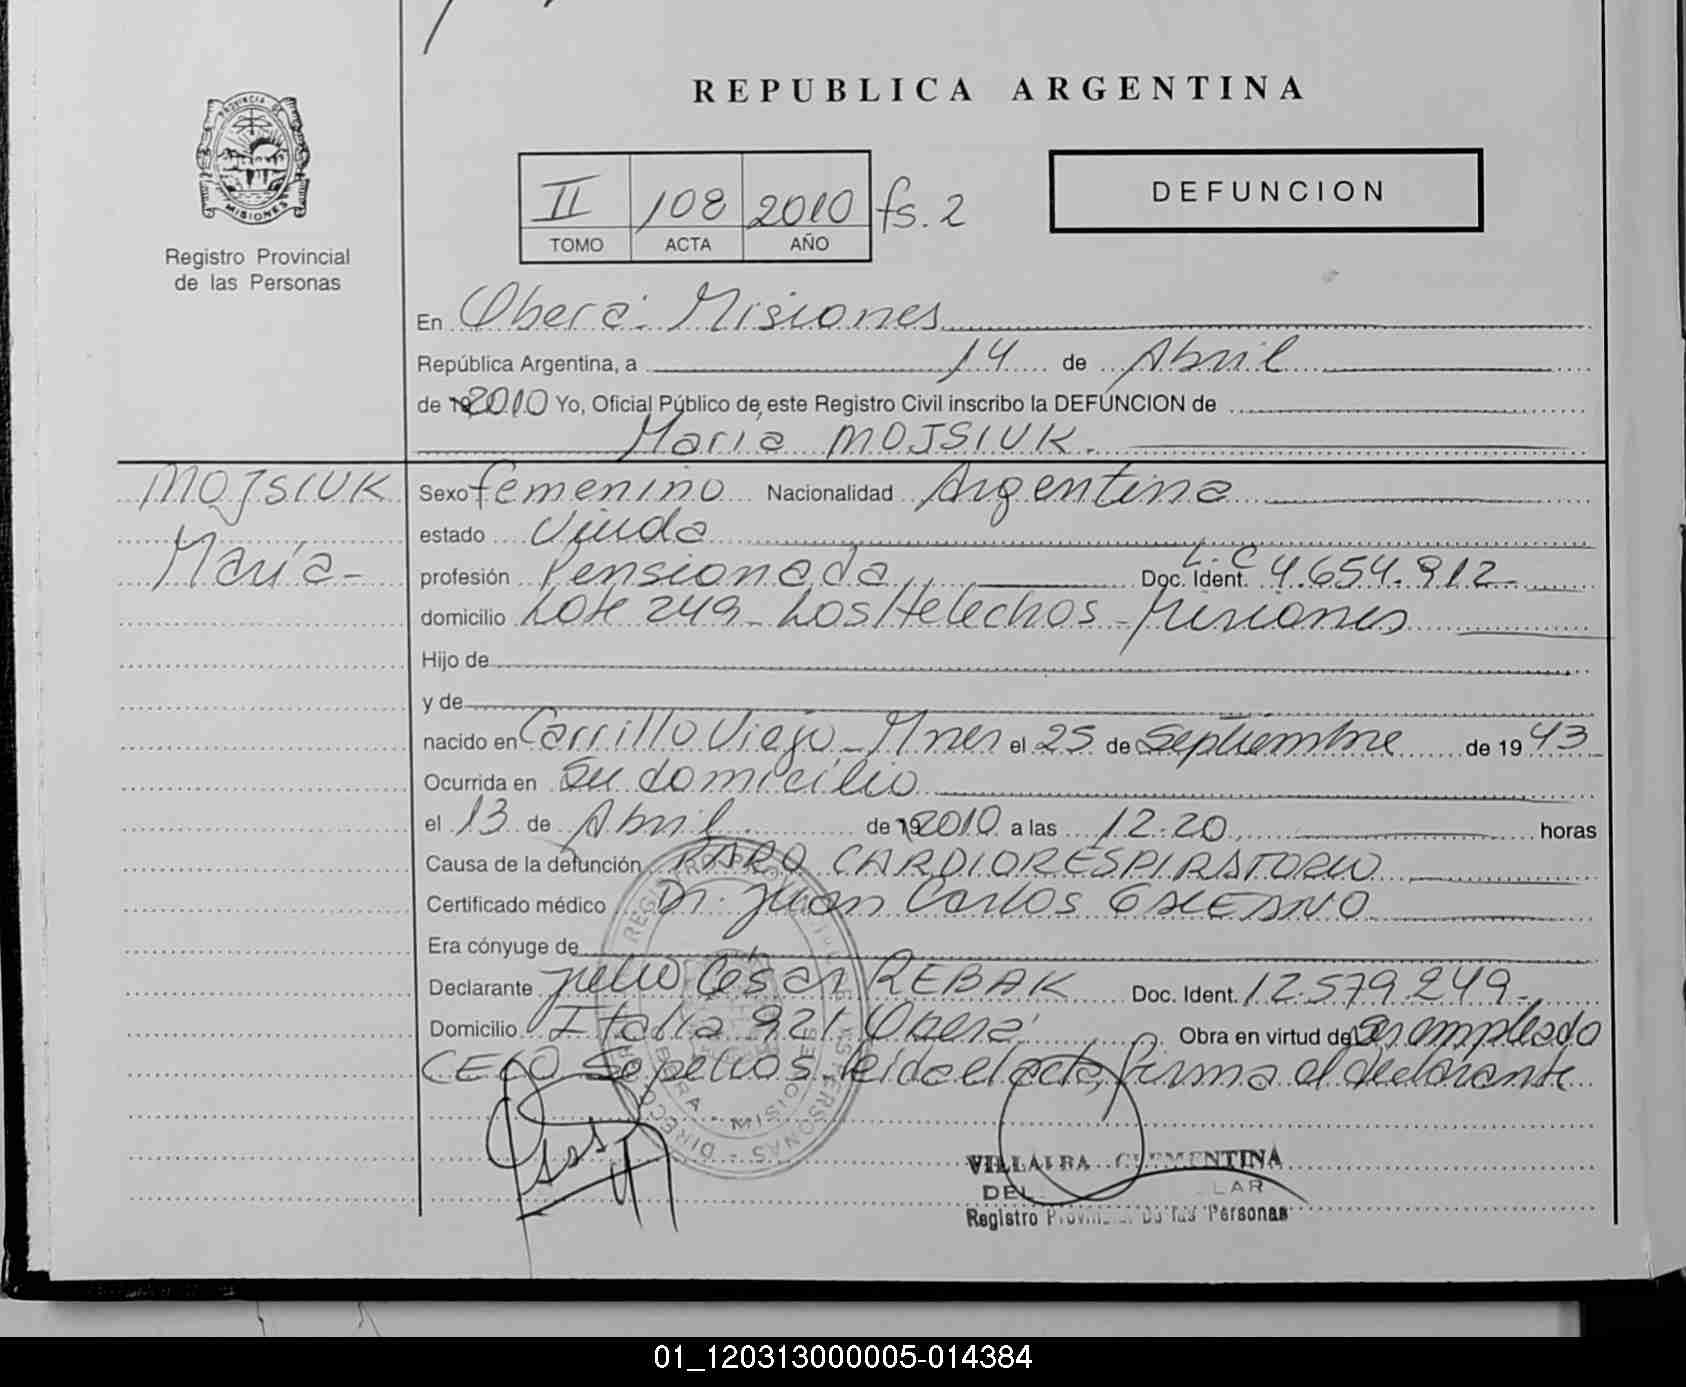 REPUBLICA ARGENTINA
PROVINCIA DE
MISIONES
Registro Provincial
de las Personas
II 108 2010 fs. 2
TOMO ACTA AÑO
DEFUNCION
En Oberá. Misiones
República Argentina, a 14 de Abril
de 2010 Yo, Oficial Público de este Registro Civil inscribo la DEFUNCION de
María MOJSIUK.
MOJSIUK
María-
Sexo femenino Nacionalidad Argentina
estado Viuda
profesión Pensionada Doc. Ident. L.C 4.654.912-
domicilio Lote 249- Los Helechos - Misiones
Hijo de
y de
nacido en Carrillo Viejo - Mnes el 25 de Septiembre de 19 43
Ocurrida en Su domicilio
el 13 de Abril de 2010 a las 12.20 horas
Causa de la defunción PARO CARDIORESPIRATORIO
Certificado médico Dr. Juan Carlos
Era cónyuge de
Declarante Julio César REBAK Doc. Ident. 12.579.249-
Domicilio Italia 921 Oberá Obra en virtud de Ser empleado
CELO Sepelios leida el acta, firma el declarante
VILLALBA CLEMENTINA
DEL
Registro Provincial De las Personas
01_120313000005-014384